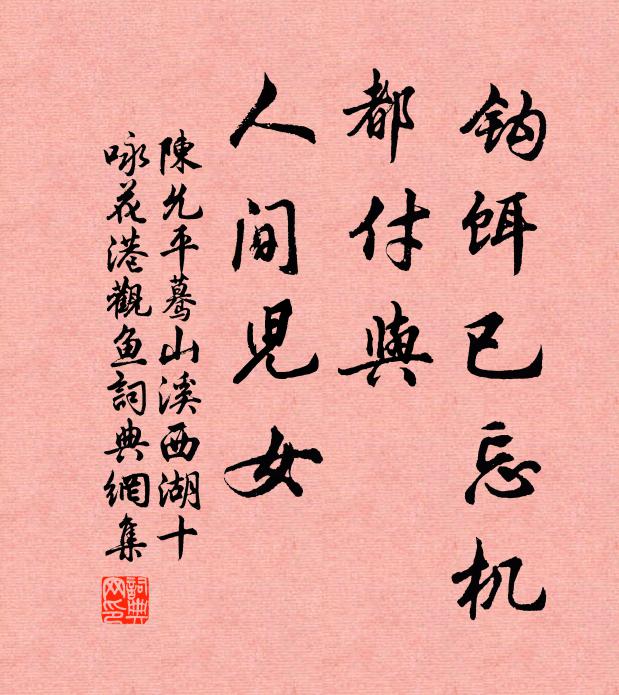 钩饵已忘机
都付與
人间兒女
陳允平蓦山溪西湖十
咏花港觀鱼詞典網集
詞典网印